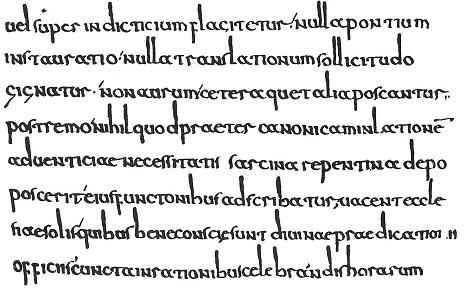 uel super indicticium flagitetur· nulla pontium
instauratio· nulla translationum sollicitudo
gignatur· non aurum ceteraque talia poscantur·
postremo nihil quod praeter canonicam inlationē
aduenticiae necessitatis sarcina repentina depo
poscerit eius functionibus adscribatur, uacent eccle
siae solis quibus bene conscie sunt diuinae praedicationi
officiis cuncta in rationibus celebrandis horarum